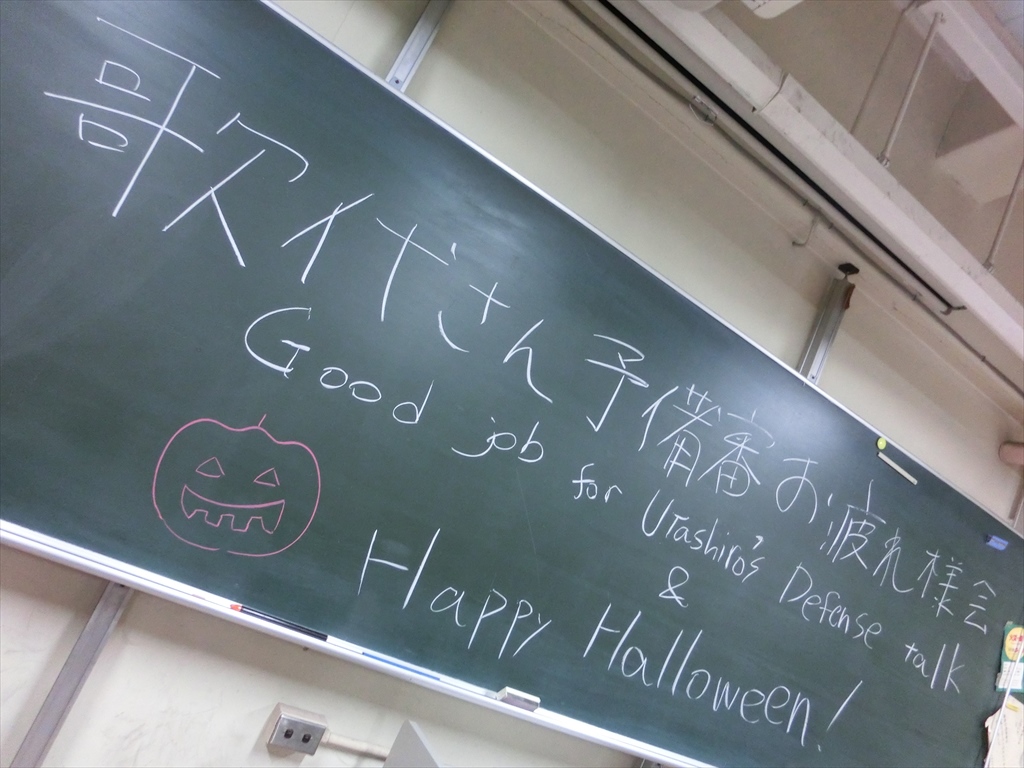 歌代さん予備審お疲れ様会
Good job for Utashiro's Defense talk
&
Happy Halloween!